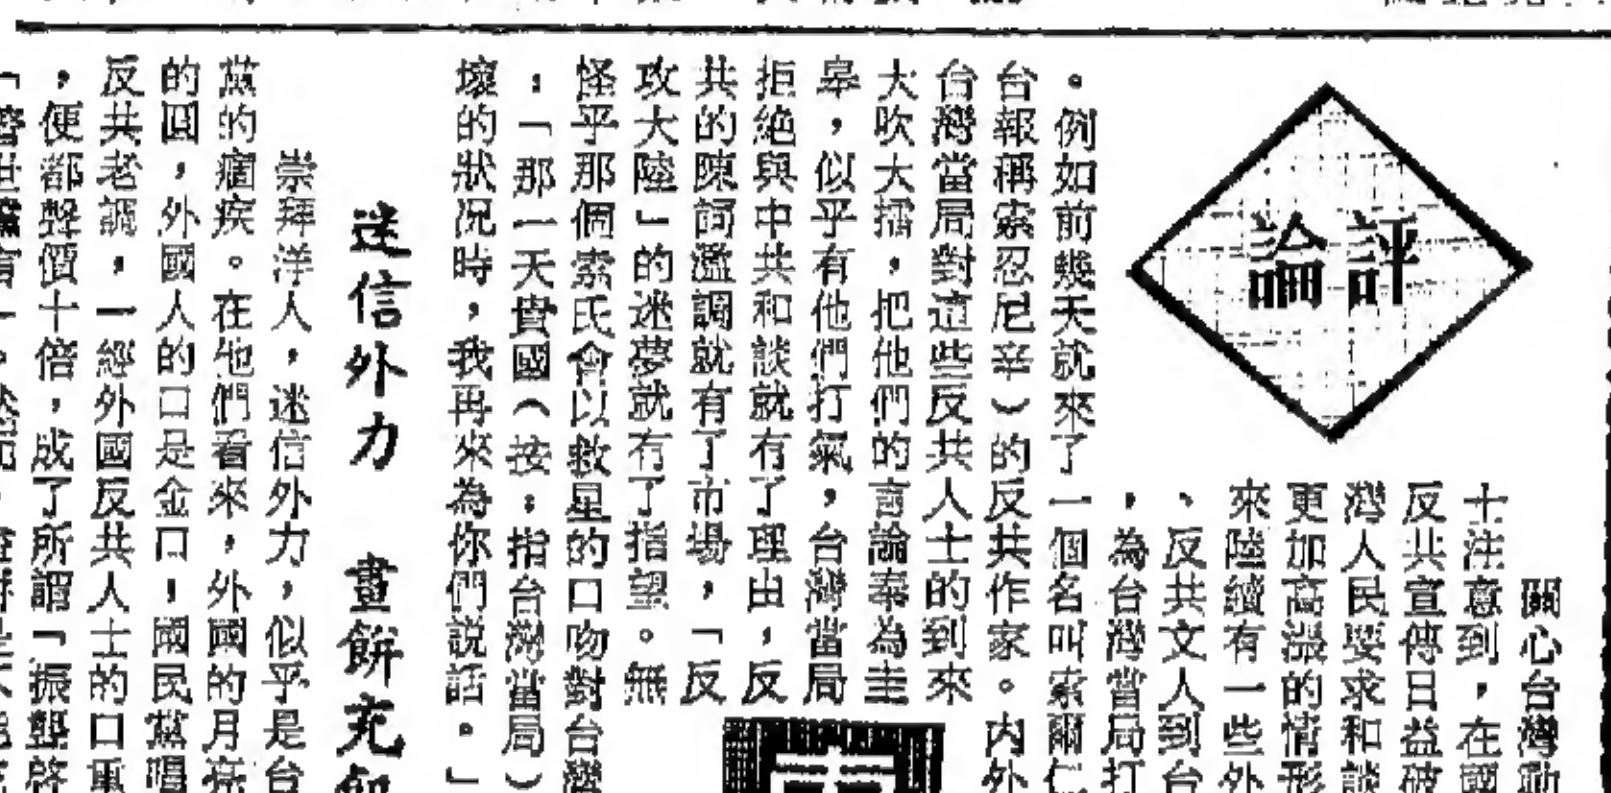 評論
關心台灣動
士注意到，在國
反共宣傳日益破
灣人民要求和談
更加高漲的情形
來陸續有一些外
、反共文人到台
，為台灣當局打
。例如前幾天就來了一個名叫索爾仁
台報稱索忍尼辛）的反共作家。內外
台灣當局對這些反共人士的到來
大吹大擂，把他們的言論奉為圭
皋，似乎有他們打氣，台灣當局
拒絕與中共和談就有了理由，反
共的陳詞濫調就有了市場，「反
攻大陸」的迷夢就有了指望。無
怪乎那個索氏會以救星的口吻對台灣
：「那一天貴國（按：指台灣當局）
壞的狀況時，我再來為你們說話。」
迷信外力　畫餅充飢
崇拜洋人，迷信外力，似乎是台
黨的痼疾。在他們看來，外國的月亮
的圓，外國人的口是金口！國民黨唱
反共老調，一經外國反共人士的口重
，便都聲價十倍，成了所謂「振聾啓